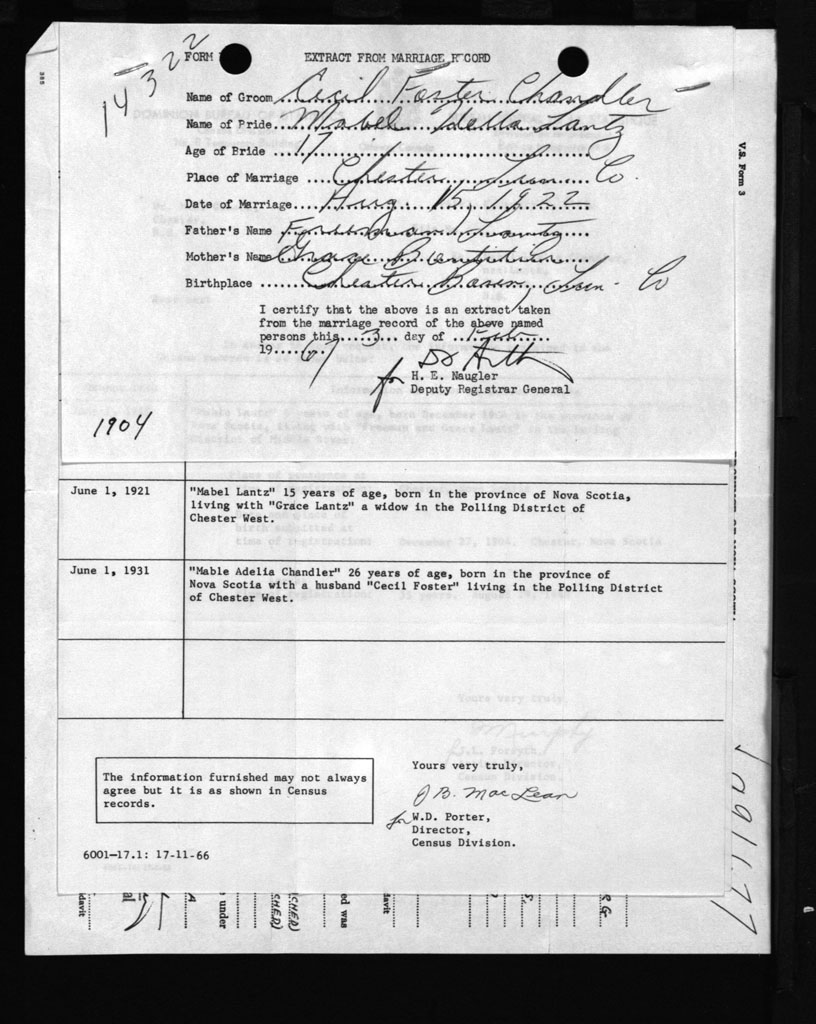 14322
FORM
EXTRACT FROM MARRIAGE RECORD
Name of Groom Cecil Foster Chandler
Name of Pride Mabel Della Lantz
Age of Bride 17
Place of Marriage Chester Lun. Co.
Date of Marriage Aug. 15, 1922
Father's Name Freeman Lantz
Mother's Name Grace
Birthplace Chester Basin, Lun. Co
I certify that the above is an extract taken
from the marriage record of the above named
persons this 3 day of Feb
19 67
for H. E. Naugler
Deputy Registrar General
1904
V.S. Form 3
June 1, 1921 "Mabel Lantz" 15 years of age, born in the province of Nova Scotia,
living with "Grace Lantz" a widow in the Polling District of
Chester West.
June 1, 1931 "Mable Adelia Chandler" 26 years of age, born in the province of
Nova Scotia with a husband "Cecil Foster" living in the Polling District
of Chester West.
The information furnished may not always
agree but it is as shown in Census
records.
Yours very truly,
J B. MacLean
for W.D. Porter,
Director,
Census Division.
6001-17.1: 17-11-66
davit
under
(SHED)
(SHED)
ed was
davit